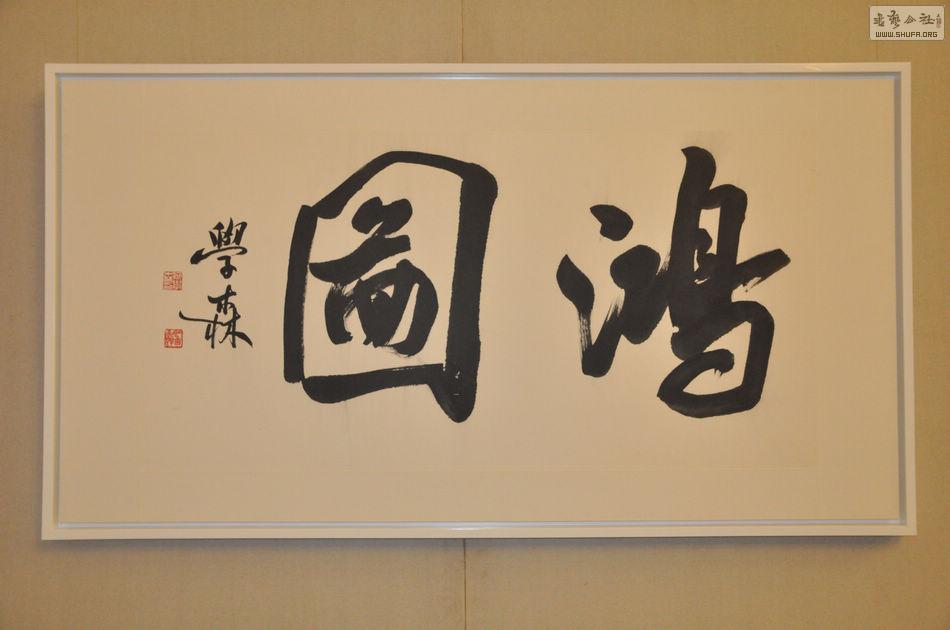 鴻圖
學森
書藝公社
WWW.SHUFA.ORG